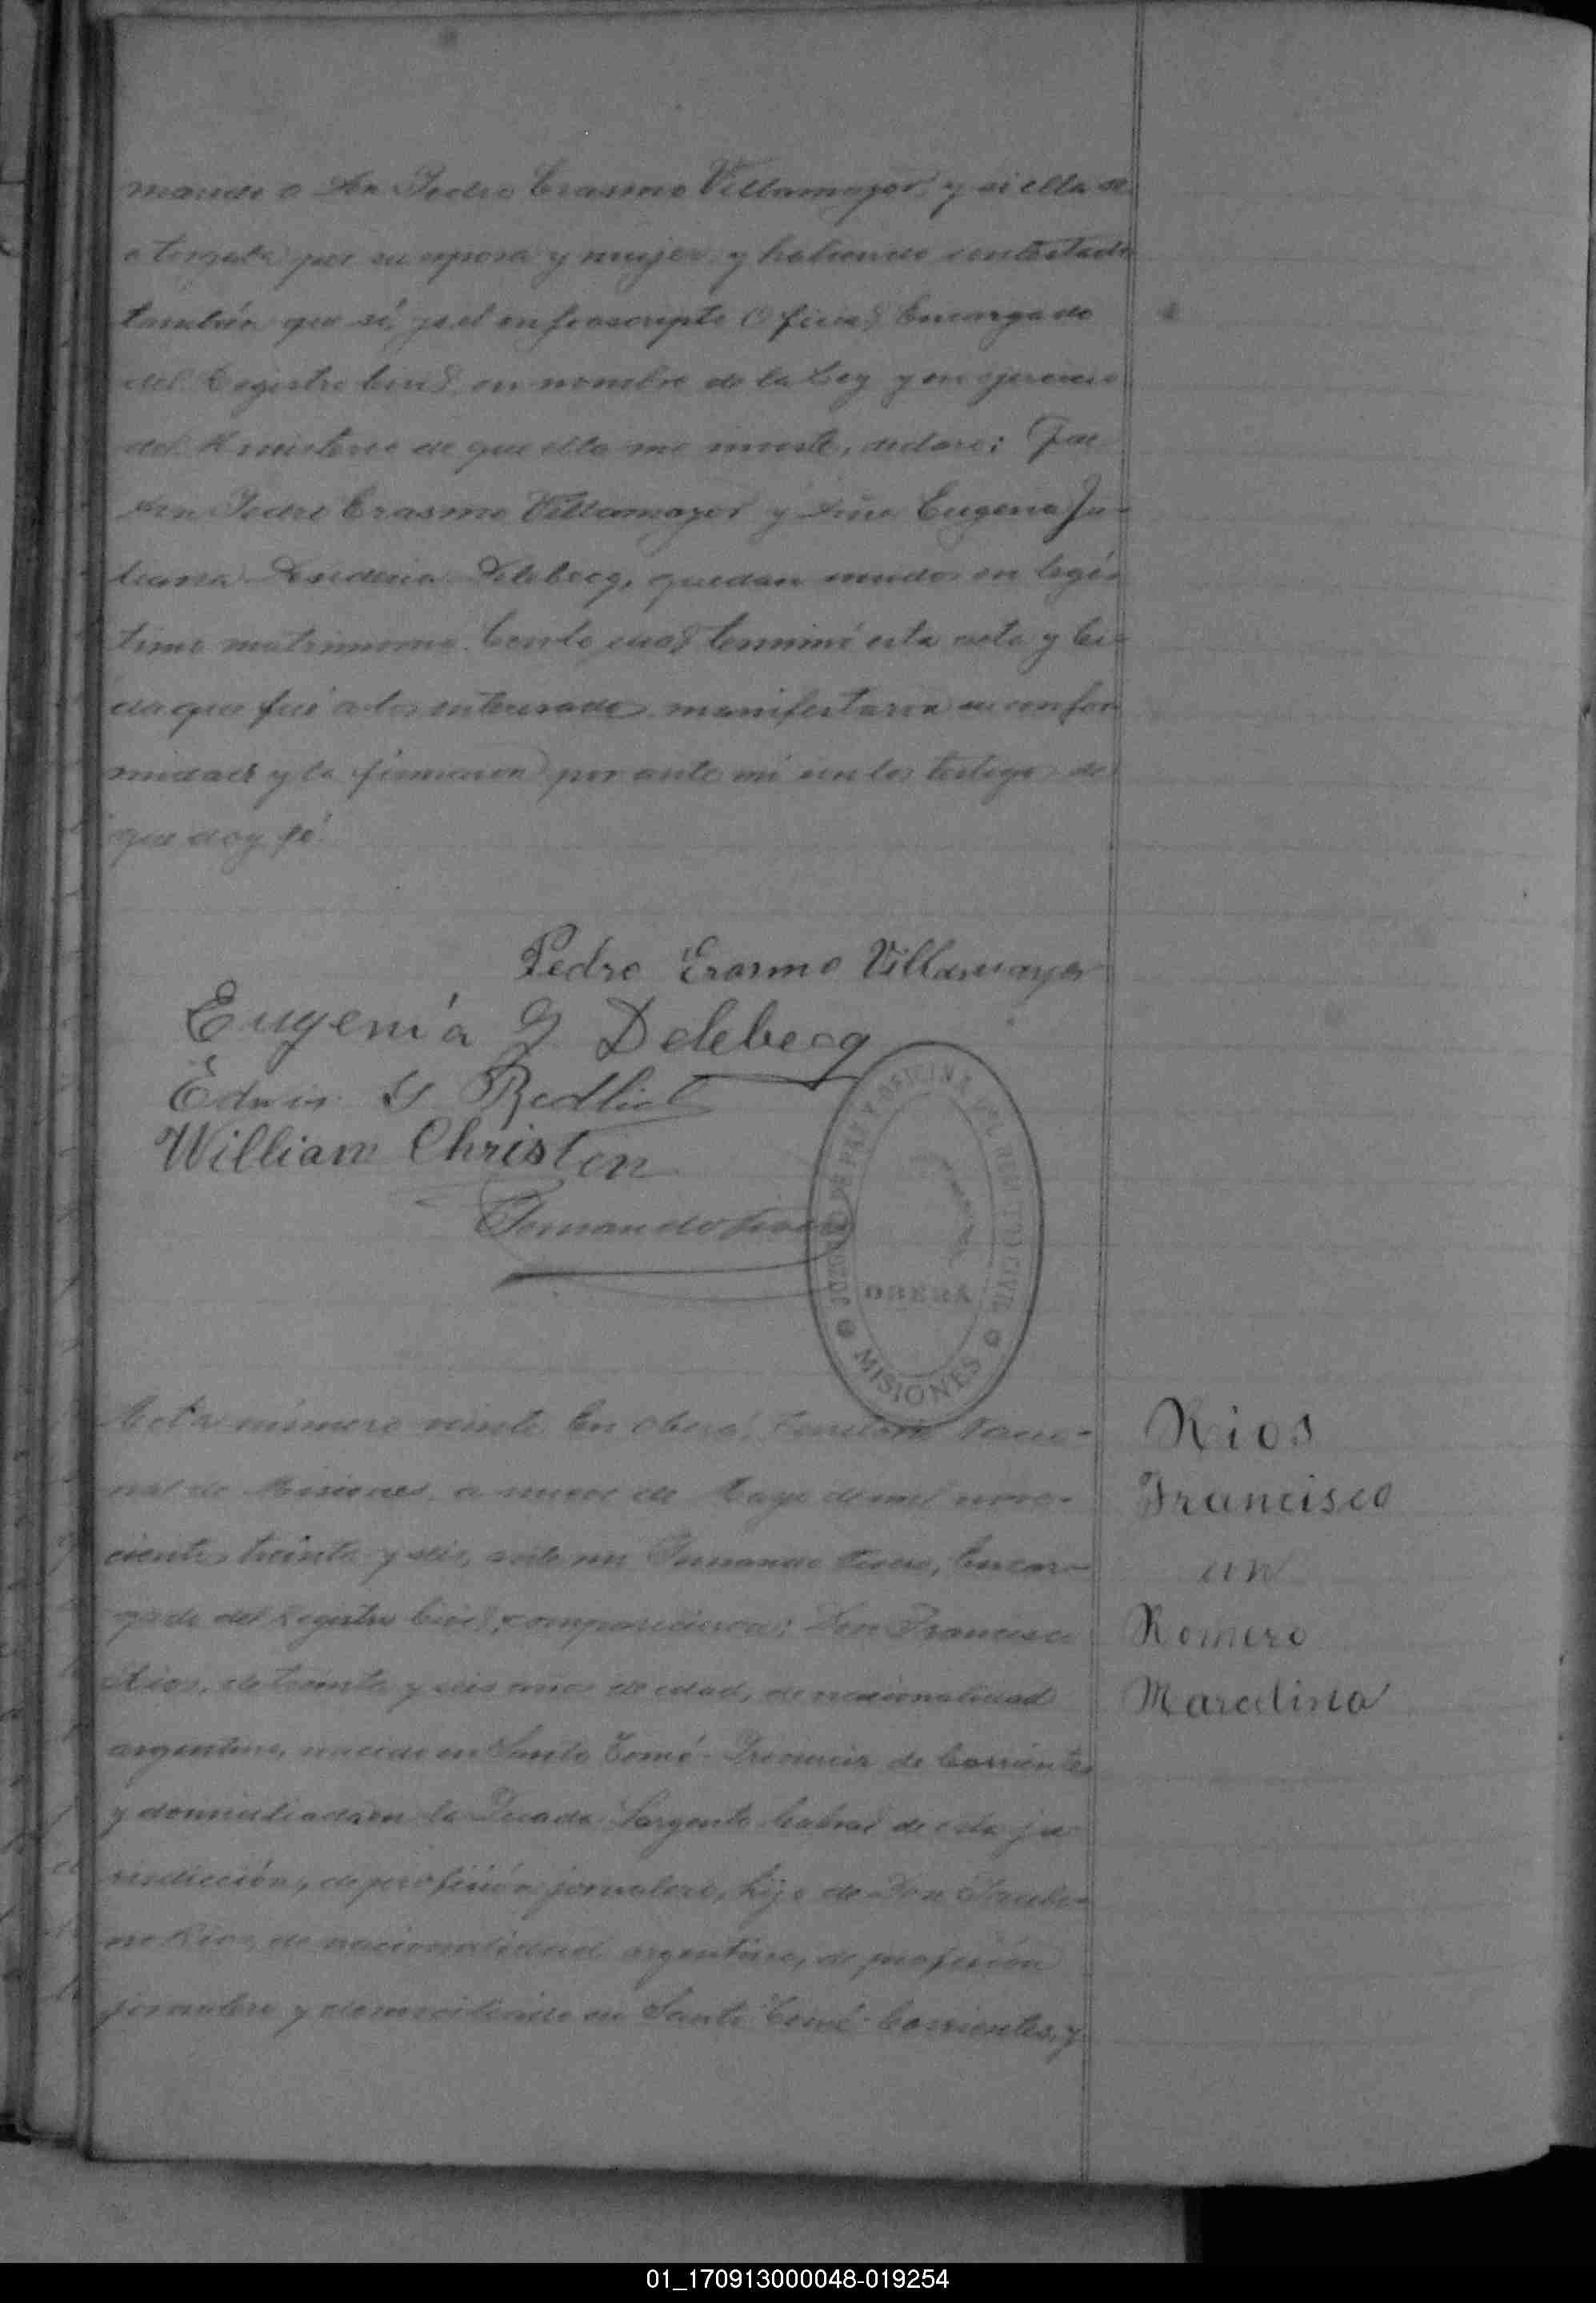 marido a Don Pedro Erasmo Villamayor, y si ella se
o tomaba por su esposa y mujer y habiendo contestado
también que sí, yo el infrascripto Oficial Encargado
del Registro Civil, en nombre de la Ley y en ejercicio
del Ministerio de que ella me inviste, declaro: Que
Don Pedro Erasmo Villamayor y Doña Eugenia Ju-
liana Desideria Delebecq, quedan unidos en legí-
timo matrimonio. Con lo cual terminé esta acta y lei-
da que fué a los interesados manifestaron su confor
midad y la firmaron por ante mí con los testigos de
que doy fé.
Pedro Erasmo Villamayor
Eugenia J Delebecq
Edwin G Redlich
William Christen
Fernando
JUZGADO DE PAZ Y OFICINA DEL REGISTRO CIVIL
OBERÁ
MISIONES
Acta número veinte En Oberá, Territorio Nacio-
nal de Misiones, a nueve de Mayo de mil nove-
cientos treinta y seis, ante mi Fernando Encar-
gado del Registro Civil, comparecieron: Don Francisco
Rios, de treinta y seis años de edad, de nacionalidad
argentino, nacido en Santo Tomé - Provincia de Corrientes
y domiciliado en la Picada Sargento Cabral de esta ju
risdicción, de profesión jornalero, hijo de Don
no Rios, de nacionalidad argentino, de profesión
jornalero y domiciliado en Santo Tomé - Corrientes, y
Rios
Francisco
con
Romero
Marcelina
01_170913000048-019254